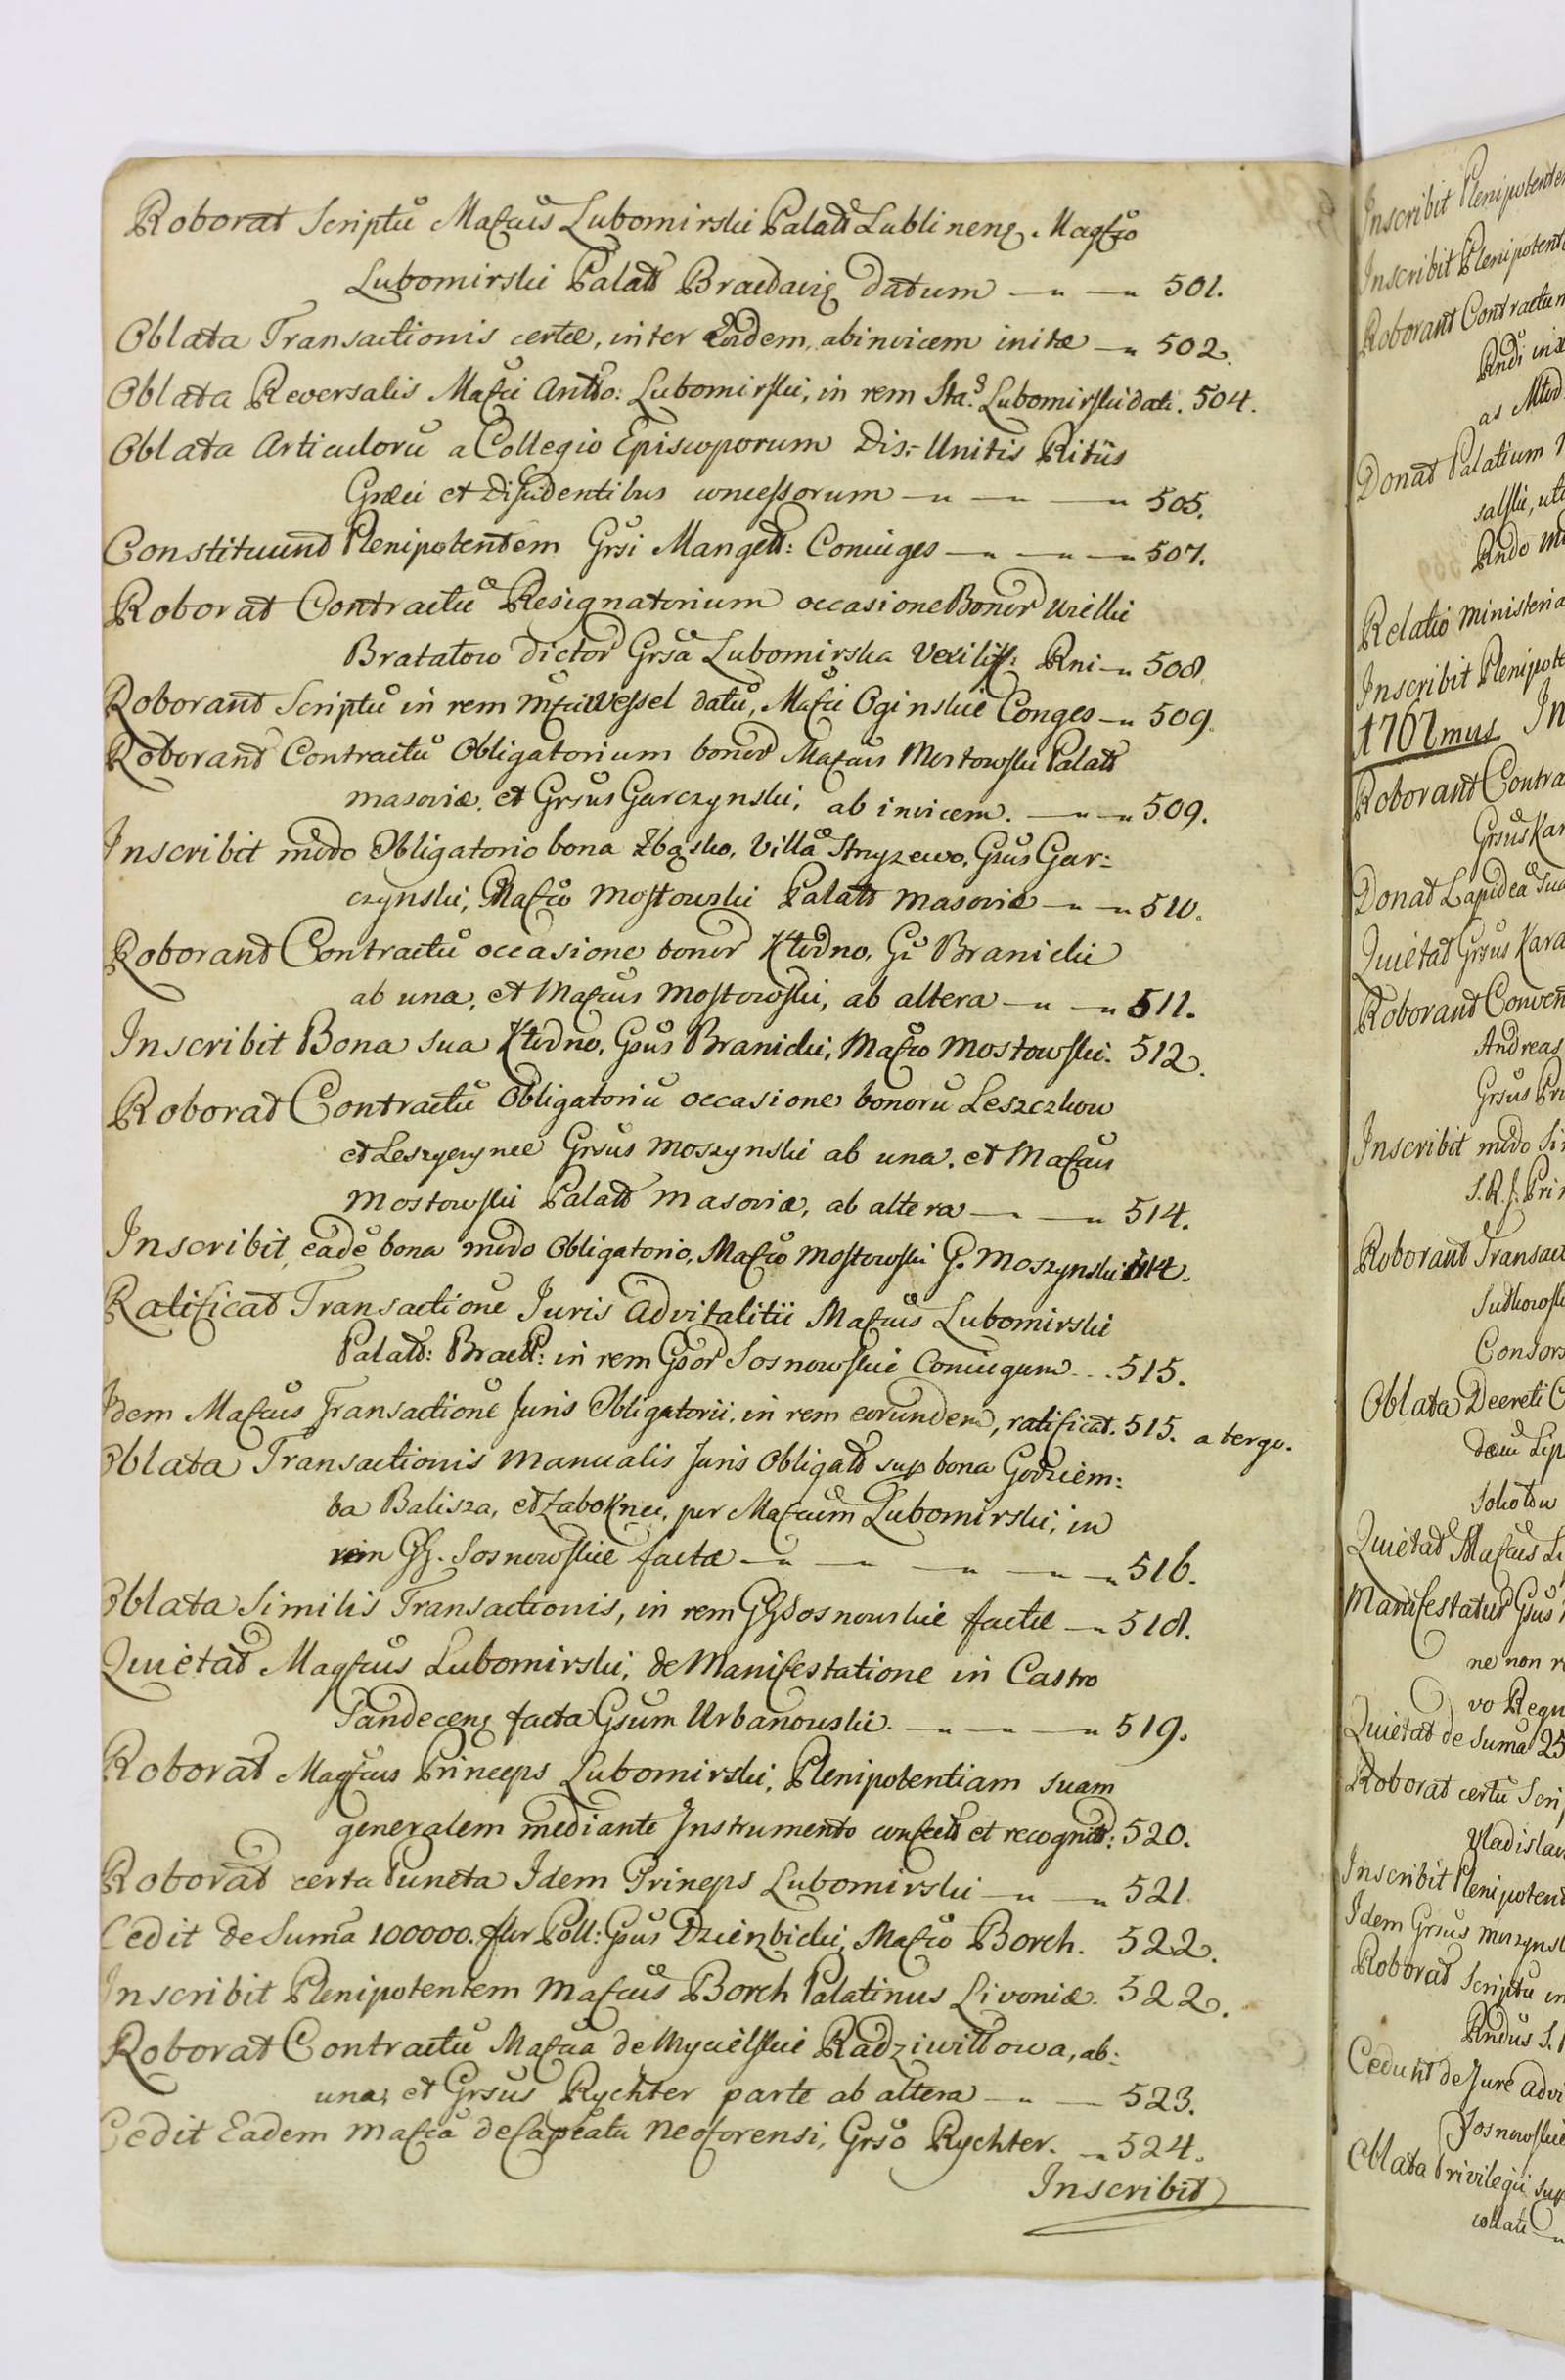 Roborat Scriptū Mafcus Lubomirski Palatt Lublineng. Magfco
Lubomirski Palatt Bracłavię datum — „ — „ 501.
Oblata Transactionis certæ, inter Eosdem, abinvicem initæ — „ 502.
Oblata Reversalis Mafci Antto: Lubomirski, in rem Sta: Lubomirski dati. 504.
Oblata Articulorū a Collegio Episcoporum Dis-Unitis Ritûs
Græci et Dissidentibus concessorum — „ — „ — „ 505.
Constituunt Plenipotentem Grsi Mangett: Coniuges — „ — „ — „ 507.
Roborat Contractū Resignatorium occasione Bonor
Bratałow dictor Grsa Lubomirska Vexilif: Rni — „ 508.
Roborant Scriptū in rem Mfci Wessel datū, Mafci Oginskie Conges — „ 509.
Roborant Contractū Obligatorium bonor Mafcus Mostowski Palatt
Masoviæ. et Grsus Garczynski, ab invicem. — „ — „ 509.
Inscribit modo Obligatorio bona Zbąsko, Villā Stryzewo, Gsus Gar:
czynski, Mafco Mostowski Palatt Masoviæ — „ — „ 510.
Roborant Contractū occasione bonor Kłodno, Gr Branicki
ab una, et Mafcus Mostowski, ab altera — „ — „ 511.
Inscribit Bona sua Kłodno, Gsus Branicki, Mafco Mostowski. 512.
Roborat Contractū Obligatoriū occasione bonorū Leszczkow
et Leszczynce Grsus Moszynski ab una. et Mafcus
Mostowski Palatt Masoviæ, ab altera — „ — „ 514.
Inscribit, eadē bona modo Obligatorio, Mafco Mostowski G. Moszynski 514.
Ratificat Transactionē Juris Advitalitii Mafcus Lubomirski
Palatt: Bracł: in rem Gsor Sosnowskie Coniugum . . . 515.
Idem Mafcus Transactionē Juris Obligatorii, in rem eorundem, ratificat. 515. a tergo.
Oblata Transactionis Manualis Juris Obligatt sup bona Godziem:
ba Balisza, et Zabokrzei, per Mafcum Lubomirski, in
rem GG. Sosnowskie factæ — „ — „ — „ — „ 516.
Oblata Similis Transactionis, in rem GG Sosnowskie factæ — „ 518.
Quietat Magfcus Lubomirski, de Manifestatione in Castro
Sandeceng facta Gsum Urbanowski. — „ — „ — „ 519.
Roborat Magfcus Princeps Lubomirski, Plenipotentiam suam
generalem mediante Instrumento confectt et recognitt: 520.
Roborat certa Puncta Idem Princps Lubomirski — „ — „ 521
Cedit de Sumā 100000. flor Poll: Gsus Dzierzbicki, Mafco Borch. 522.
Inscribit Plenipotentem Mafcus Borch Palatinus Livoniæ. 522.
Roborat Contractū Mafca de Mycielskie Radziwiłłowa, ab:
una, et Grsus Rychter parte ab altera — „ — 523.
Cedit Eadem Mafca de Capeatu Neoforensi, Grso Rychter. — „ 524.
Inscribit
Inscribit Plenipotente
Inscribit Plenipotent
Roborant Contractum
Donat Palatium
salskie, uti
Relatio Ministeria
Inscribit Plenipote
1767mus In
Roborant Contra
Grsus Kar
Donat Lapideā sua
Quietat Grsus Kara
Roborant Conven
Andreas
Grsus Pri
Inscribit modo Si
S. R. J. Prin
Roborant Transact
Sułkowsk
Consors
Oblata Decreti C
Quietat Mafcus Lu
Manifestatur Gsus
ne non r
vo Regn
Quietat de Suma 25
Roborat certū Scri
Vladislau
Inscribit Plenipotent
Idem Grsus Moszynsk
Roborat Scriptū in
Rndus S.
Cedunt de Jure Advi
Sosnowskie
Oblata Privilegii sup
collati — „